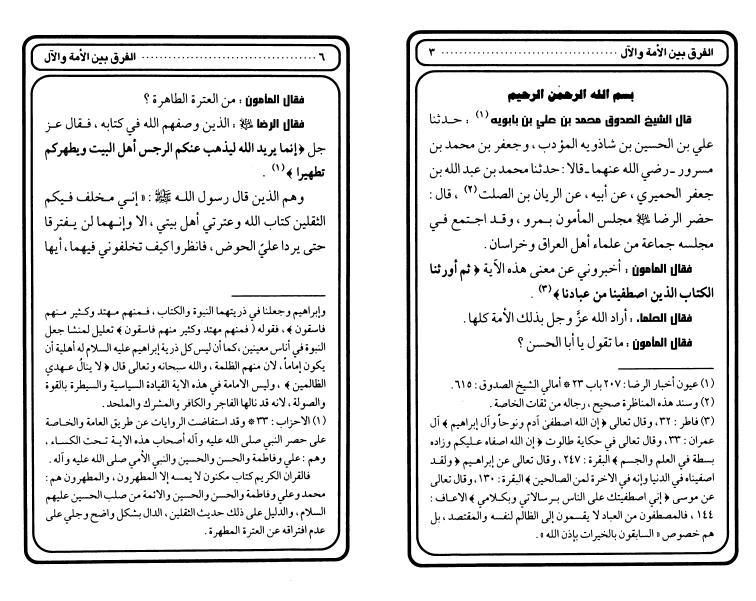 الفرق بين الأمة والآل ........................................ ٣
بسم الله الرحمن الرحيم
قال الشيخ الصدوق محمد بن علي بن بابويه (١) : حدثنا
علي بن الحسين بن شاذويه المؤدب ، وجعفر بن محمد بن
مسرور ـ رضي الله عنهما ـ قالا : حدثنا محمد بن عبد الله بن
جعفر الحميري ، عن أبيه ، عن الريان بن الصلت (٢) ، قال :
حضر الرضا ﷺ مجلس المأمون بمرو ، وقد اجتمع في
مجلسه جماعة من علماء أهل العراق وخراسان .
فقال المأمون : أخبروني عن معنى هذه الآية ﴿ ثم أورثنا
الكتاب الذين اصطفينا من عبادنا ﴾ (٣) .
فقال العلماء : أراد الله عزَّ وجل بذلك الأمة كلها .
فقال المأمون : ما تقول يا أبا الحسن ؟
(١) عيون أخبار الرضا : ٢٠٧ باب ٢٣ * أمالي الشيخ الصدوق : ٦١٥ .
(٢) وسند هذه المناظرة صحيح ، رجاله من ثقات الخاصة .
(٣) فاطر : ٣٢ ، وقال تعالى ﴿ إن الله اصطفى آدم ونوحاً وآل ابراهيم ﴾ آل
عمران : ٣٣ ، وقال تعالى في حكاية طالوت ﴿ إن الله اصفاه عليكم وزاده
بسطة في العلم والجسم ﴾ البقرة : ٢٤٧ ، وقال تعالى عن إبراهيم ﴿ ولقد
اصفيناه في الدنيا وإنه في الاخرة لمن الصالحين ﴾ البقرة : ١٣٠ ، وقال تعالى
عن موسى ﴿ إني اصطفيتك على الناس برسالاتي وبكلامي ﴾ الاعاف :
١٤٤ ، فالمصطفون من العباد لا يقسمون إلى الظالم لنفسه والمقتصد ، بل
هم خصوص « السابقون بالخيرات بإذن الله » .
٦ ........................................ الفرق بين الأمة والآل
فقال المأمون : من العترة الطاهرة ؟
فقال الرضا ﷺ : الذين وصفهم الله في كتابه ، فقال عز
جل ﴿ إنما يريد الله ليذهب عنكم الرجس أهل البيت ويطهركم
تطهيرا ﴾ (١) .
وهم الذين قال رسول الله ﷺ : « إني مخلف فيكم
الثقلين كتاب الله وعترتي أهل بيتي ، الا وإنهما لن يفترقا
حتى يردا عليّ الحوض ، فانظروا كيف تخلفوني فيهما ، أيها
وإبراهيم وجعلنا في ذريتهما النبوة والكتاب ، فمنهم مهتد وكثير منهم
فاسقون ﴾ ، فقوله ﴿ فمنهم مهتد وكثير منهم فاسقون ﴾ تعليل لمنشا جعل
النبوة في أناس معينين ، كما أن ليس كل ذرية إبراهيم عليه السلام له أهلية أن
يكون إماماً ، لان منهم الظلمة ، والله سبحانه وتعالى قال ﴿ لا ينال عهدي
الظالمين ﴾ ، وليس الامامة في هذه الاية القيادة السياسية والسيطرة بالقوة
والصولة ، لانه قد نالها الفاجر والكافر والمشرك والملحد .
(١) الاحزاب : ٣٣ * وقد استفاضت الروايات عن طريق العامة والخاصة
على حصر النبي صلى الله عليه وآله أصحاب هذه الاية تحت الكساء ،
وهم : علي وفاطمة والحسن والحسين والنبي الأمي صلى الله عليه وآله .
فالقران الكريم كتاب مكنون لا يمسه إلا المطهرون ، والمطهرون هم :
محمد وعلي وفاطمة والحسن والحسين والائمة من صلب الحسين عليهم
السلام ، والدليل على ذلك حديث الثقلين ، الدال بشكل واضح وجلي على
عدم افتراقه عن العترة المطهرة .